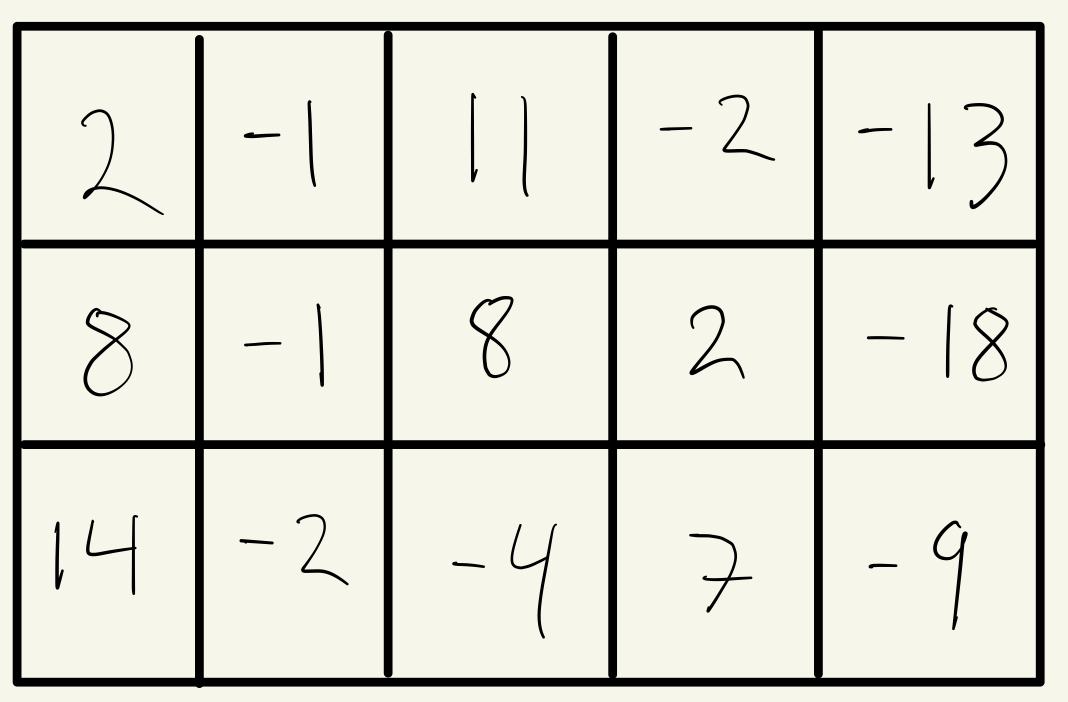 2 -1 11 -2 -13
8 -1 8 2 -18
14 -2 -4 7 -9